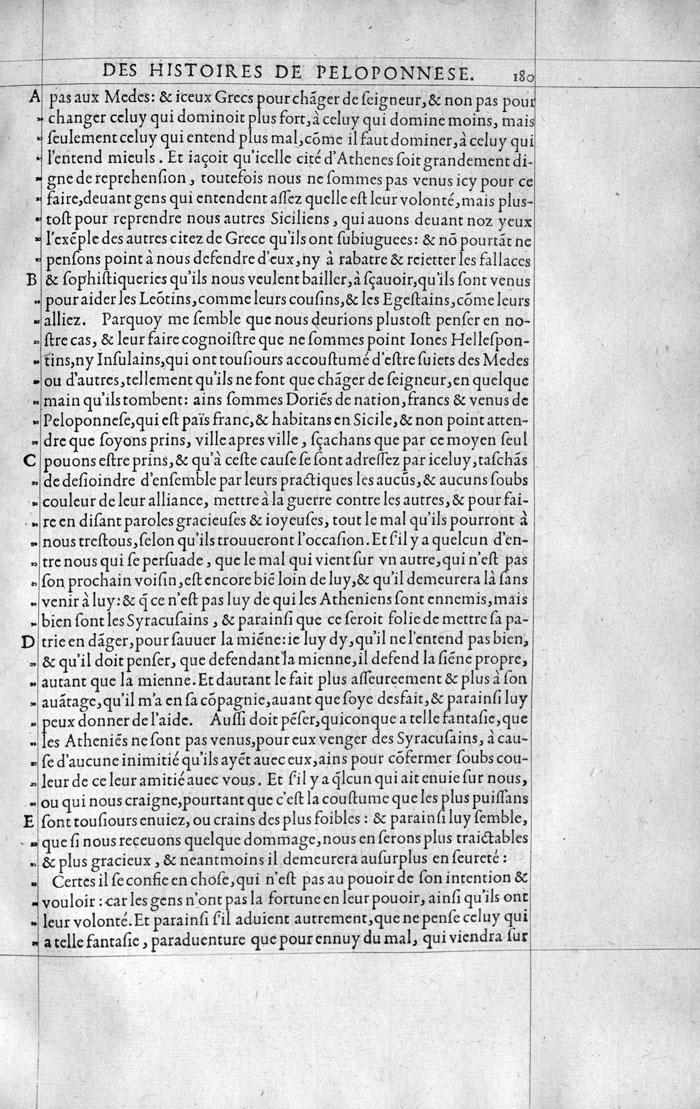 DES HISTOIRES DE PELOPONNESE. 180
A pas aux Medes: & iceux Grecs pour chãger de ſeigneur, & non pas pour
„ changer celuy qui dominoit plus fort, à celuy qui domine moins, mais
„ ſeulement celuy qui entend plus mal, cõme il faut dominer, à celuy qui
„ l'entend mieuls. Et iaçoit qu'icelle cité d'Athenes ſoit grandement di-
„ gne de reprehenſion, toutefois nous ne ſommes pas venus icy pour ce
„ faire, deuant gens qui entendent aſſez quelle eſt leur volonté, mais plus-
„ toſt pour reprendre nous autres Siciliens, qui auons deuant noz yeux
„ l'exẽple des autres citez de Grece qu'ils ont ſubiuguees: & nõ pourtãt ne
„ penſons point à nous defendre d'eux, ny à rabatre & reietter les fallaces
B & ſophiſtiqueries qu'ils nous veulent bailler, à ſçauoir, qu'ils ſont venus
„ pour aider les Leõtins, comme leurs couſins, & les Egeſtains, cõme leurs
„ alliez. Parquoy me ſemble que nous deurions plustoſt penſer en no-
„ ſtre cas, & leur faire cognoiſtre que ne ſommes point Iones Helleſpon-
„ tins, ny Inſulains, qui ont touſiours accouſtumé d'eſtre ſuiets des Medes
„ ou d'autres, tellement qu'ils ne font que chãger de ſeigneur, en quelque
„ main qu'ils tombent: ains ſommes Doriẽs de nation, francs & venus de
„ Peloponneſe, qui eſt païs franc, & habitans en Sicile, & non point atten-
„ dre que ſoyons prins, ville apres ville, ſçachans que par ce moyen ſeul
C pouons eſtre prins, & qu'à ceſte cauſe ſe ſont adreſſez par iceluy, taſchãs
„ de deſioindre d'enſemble par leurs practiques les aucũs, & aucuns ſoubs
„ couleur de leur alliance, mettre à la guerre contre les autres, & pour fai-
„ re en diſant paroles gracieuſes & ioyeuſes, tout le mal qu'ils pourront à
„ nous treſtous, ſelon qu'ils trouueront l'occaſion. Et ſ'il y a quelcun d'en-
„ tre nous qui ſe perſuade, que le mal qui vient ſur vn autre, qui n'eſt pas
„ ſon prochain voiſin, eſt encore biẽ loin de luy, & qu'il demeurera là ſans
„ venir à luy: & q̃ ce n'eſt pas luy de qui les Atheniens ſont ennemis, mais
„ bien ſont les Syracuſains, & parainſi que ce ſeroit folie de mettre ſa pa-
D trie en dãger, pour ſauuer la miẽne: ie luy dy, qu'il ne l'entend pas bien,
„ & qu'il doit penſer, que defendant la mienne, il defend la ſiẽne propre,
„ autant que la mienne. Et dautant le fait plus aſſeureement & plus à ſon
„ auãtage, qu'il m'a en ſa cõpagnie, auant que ſoye desfait, & parainſi luy
„ peux donner de l'aide. Auſſi doit pẽſer, quiconque a telle fantaſie, que
„ les Atheniẽs ne ſont pas venus, pour eux venger des Syracuſains, à cau-
„ ſe d'aucune inimitié qu'ils ayẽt auec eux, ains pour cõfermer ſoubs cou-
„ leur de ce leur amitié auec vous. Et ſ'il y a q̃lcun qui ait enuie ſur nous,
„ ou qui nous craigne, pourtant que c'eſt la couſtume que les plus puiſſans
E ſont touſiours enuiez, ou crains des plus foibles: & parainſi luy ſemble,
„ que ſi nous receuons quelque dommage, nous en ſerons plus traictables
„ & plus gracieux, & neantmoins il demeurera auſurplus en ſeureté:
„ Certes il ſe confie en choſe, qui n'eſt pas au pouoir de ſon intention &
„ vouloir: car les gens n'ont pas la fortune en leur pouoir, ainſi qu'ils ont
„ leur volonté. Et parainſi ſ'il aduient autrement, que ne penſe celuy qui
„ a telle fantaſie, paraduenture que pour ennuy du mal, qui viendra ſur